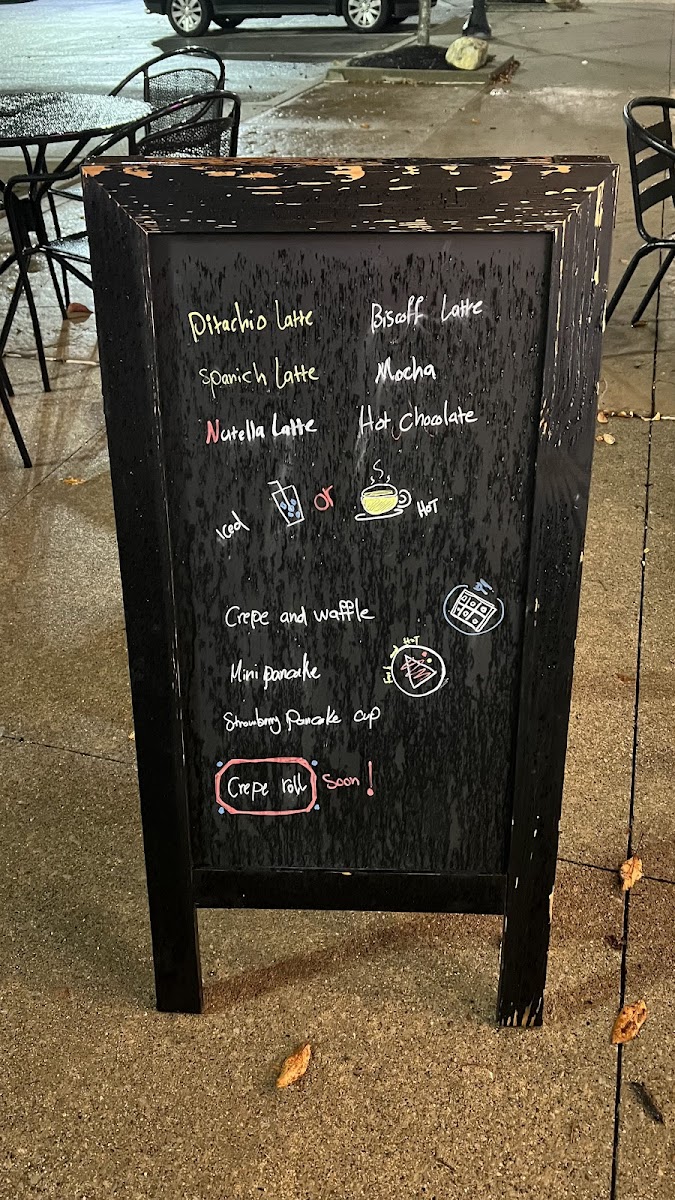 Pitachio Latte
Biscoff Latte
Spanich Latte
Mocha
Nutella Latte
Hot Chocolate
iced
or
HoT
Crepe and waffle
Mini pancake
HoT
Strawbrry Pancake cup
Crepe roll
Soon!